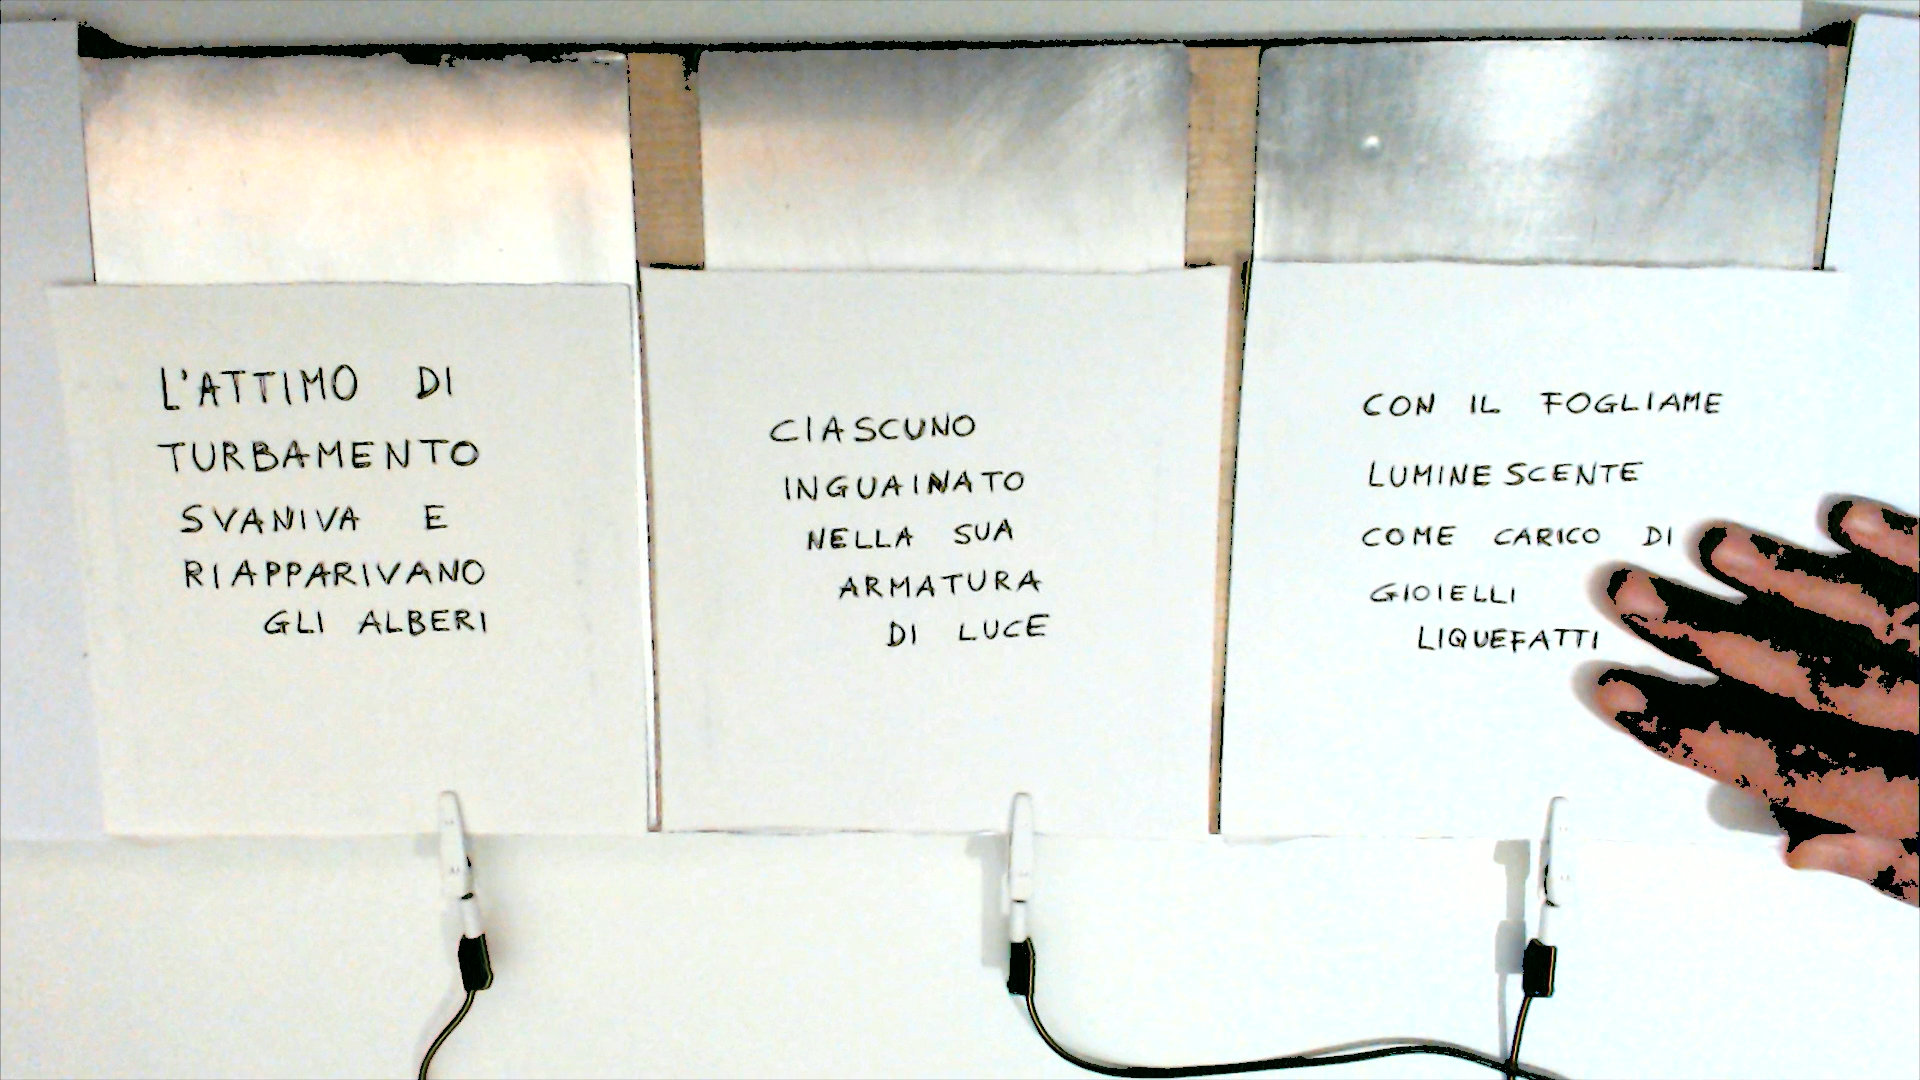 L'ATTIMO DI
TURBAMENTO
SVANIVA E
RIAPPARIVANO
GLI ALBERI
CIASCUNO
INGUAINATO
NELLA SUA
ARMATURA
DI LUCE
CON IL FOGLIAME
LUMINESCENTE
COME CARICO DI
GIOIELLI
LIQUEFATTI